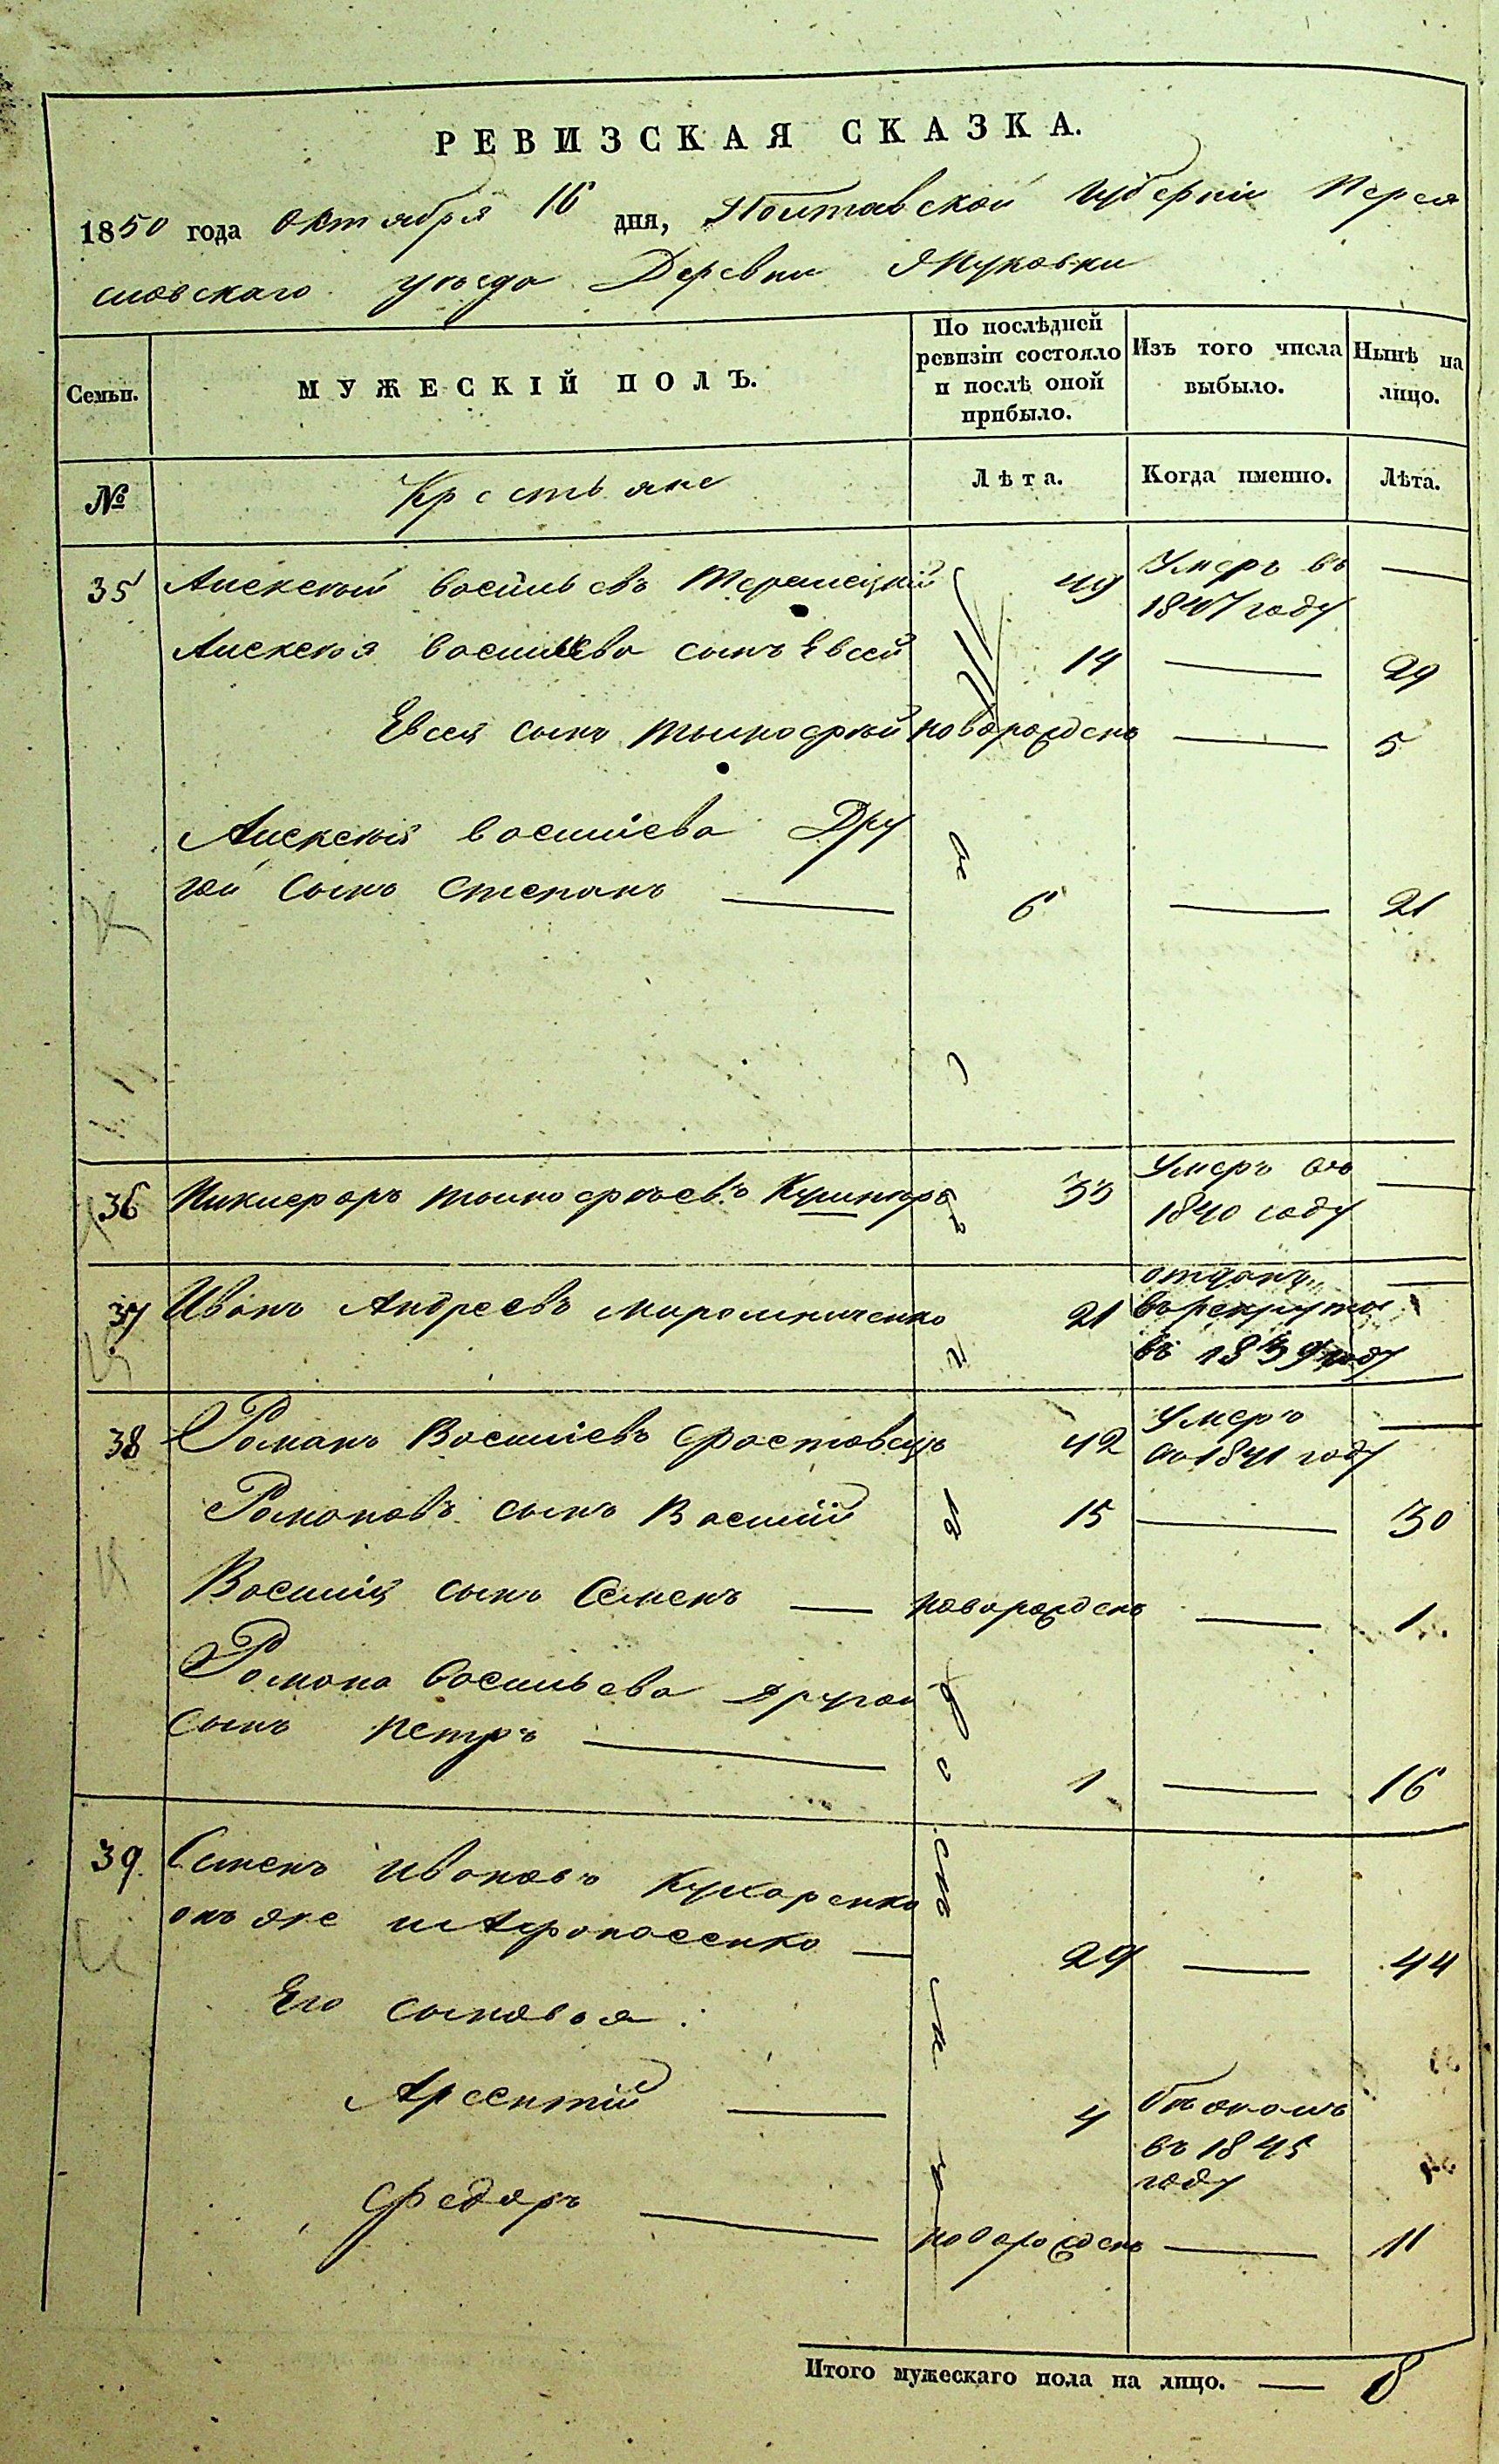 РЕВИЗСКАЯ СКАЗКА.
1850 года Октября 16 дня, Полтавской Губерніи Перея
словскаго уѣзда Деревни Яцуковки
Семьи. МУЖЕСКІЙ ПОЛЪ. По послѣдней ревизіи состояло и послѣ оной прибыло. Изъ того числа выбыло. Нынѣ на лицо.
№ Крестьяне Лѣта. Когда именно. Лѣта.
35 Алексѣй Васильевъ 49 Умеръ въ 1847 году —
Алексѣя Васильева сынъ Евсей 14 — 29
Евсея сынъ Тимофей новорожденъ — 5
Алексѣя Васильева Дру
гой Сынъ Степанъ — 6 — 21
36 Никифоръ Тимофѣевъ 33 Умеръ въ 1840 году —
37 Иванъ Андреевъ Мирошниченко 21 отданъ в рекруты въ 1839 году —
38 Романъ Василіевъ Фастовецъ 42 Умеръ въ 1841 году —
Романовъ сынъ Василій 15 — 30
Василія сынъ Семенъ — новорожденъ — 1
Романа Васильева другой
сынъ Петръ — 1 — 16
39 Семенъ Ивановъ Кухаренко
онъ же и Афонасенко — 29 — 44
Его сыновья:
Арсентій — 4 бѣжалъ въ 1845 году
Федоръ — новорожденъ — 11
Итого мужескаго пола на лицо. — 8